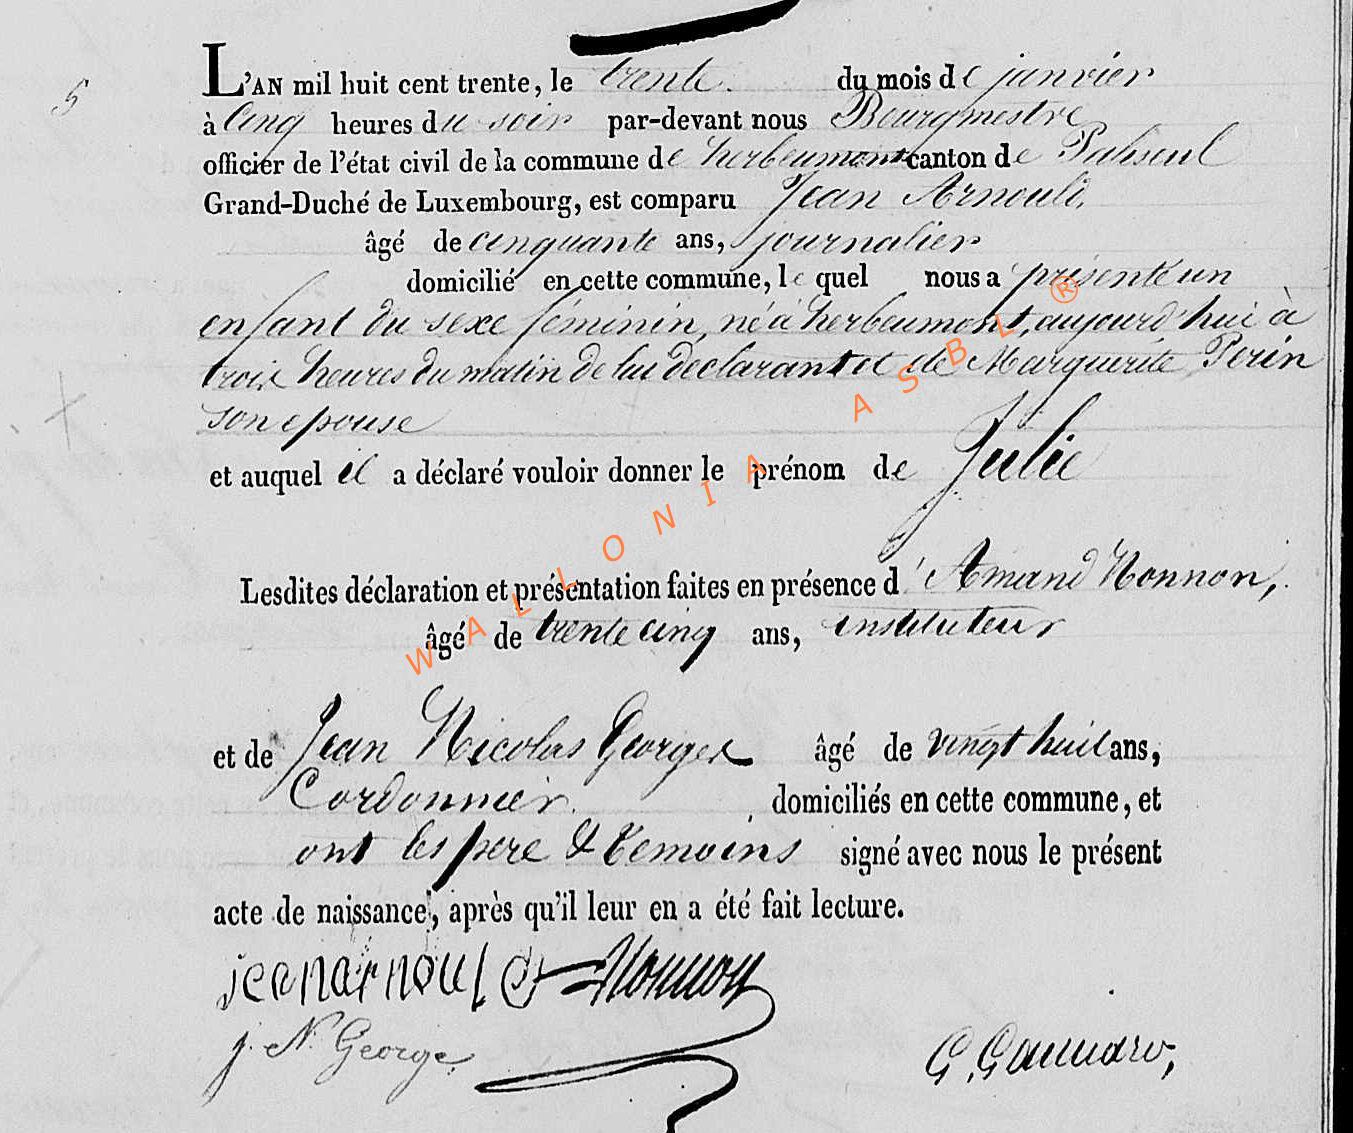 5
L'AN mil huit cent trente, le trente du mois de janvier
à Cinq heures du soir par-devant nous Bourgmestre
officier de l'état civil de la commune de herbeumont canton de Paliseul
Grand-Duché de Luxembourg, est comparu Jean Arnould,
âgé de cinquante ans, journalier
domicilié en cette commune, le quel nous a présenté un
enfant du sexe féminin, né à herbeumont, aujourd'hui à
trois heures du matin de lui déclarant et de Marguerite Perin
son epouse
et auquel il a déclaré vouloir donner le prénom de Julie
Lesdites déclaration et présentation faites en présence d'Amand Nonnon,
âgé de trente cinq ans, instituteur
et de Jean Nicolas Georges âgé de vingt huit ans,
Cordonnier. domiciliés en cette commune, et
ont les pere & temoins signé avec nous le présent
acte de naissance, après qu'il leur en a été fait lecture.
jean arnould Nonnon
j. N. George
WALLONIA ASBL ®